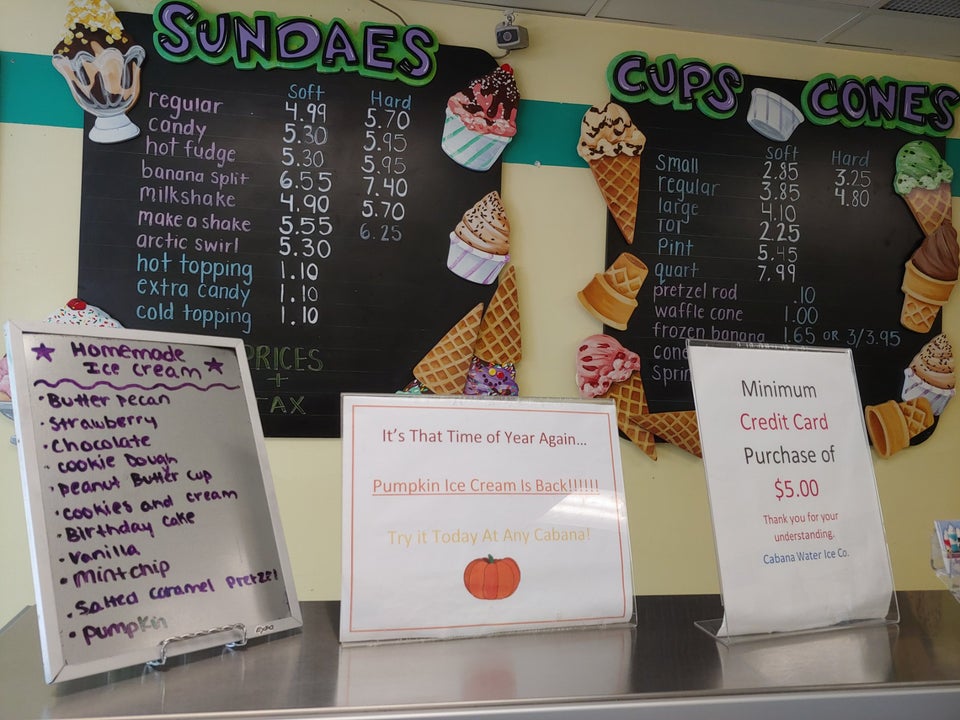 SUNDAES
Soft Hard
regular 4.99 5.70
candy 5.30 5.95
hot fudge 5.30 5.95
banana split 6.55 7.40
milkshake 4.90 5.70
make a shake 5.55 6.25
arctic swirl 5.30
hot topping 1.10
extra candy 1.10
cold topping 1.10
PRICES
+
TAX
CUPS CONES
Soft Hard
Small 2.85 3.25
regular 3.85 4.80
large 4.10
TOT 2.25
Pint 5.45
quart 7.99
pretzel rod .10
waffle cone 1.00
frozen banana 1.65 OR 3/3.95
Homemade
Ice cream
• Butter pecan
• Strawberry
• Chocolate
• cookie Dough
• peanut Butter cup
• cookies and cream
• Birthday cake
• vanilla
• Mint chip
• Salted caramel pretzel
• pumpkin
It's That Time of Year Again...
Pumpkin Ice Cream Is Back!!!!!!
Try it Today At Any Cabana!
Minimum
Credit Card
Purchase of
$5.00
Thank you for your
understanding.
Cabana Water Ice Co.